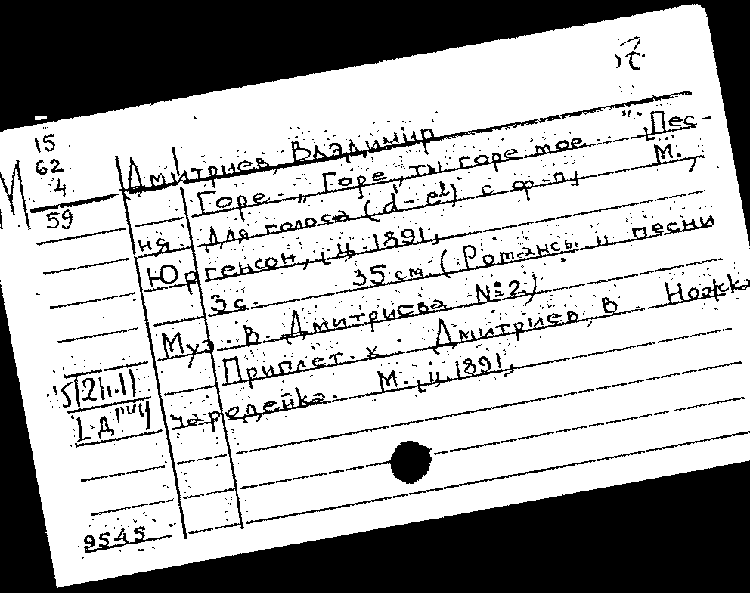 15
62
М 4
59
Дмитриев, Владимир
Горе. „Горе, ты горе мое...“. Пес-
ня для голоса (d'- e²) с ф-п, М.,
Юргенсон, ц. 1891,
3 с. 35 см (Романсы и песни
Муз. В. Дмитриева № 2).
Приплет. к. Дмитриев, В. Ножка
чародейка. М., ц. 1891,
9545